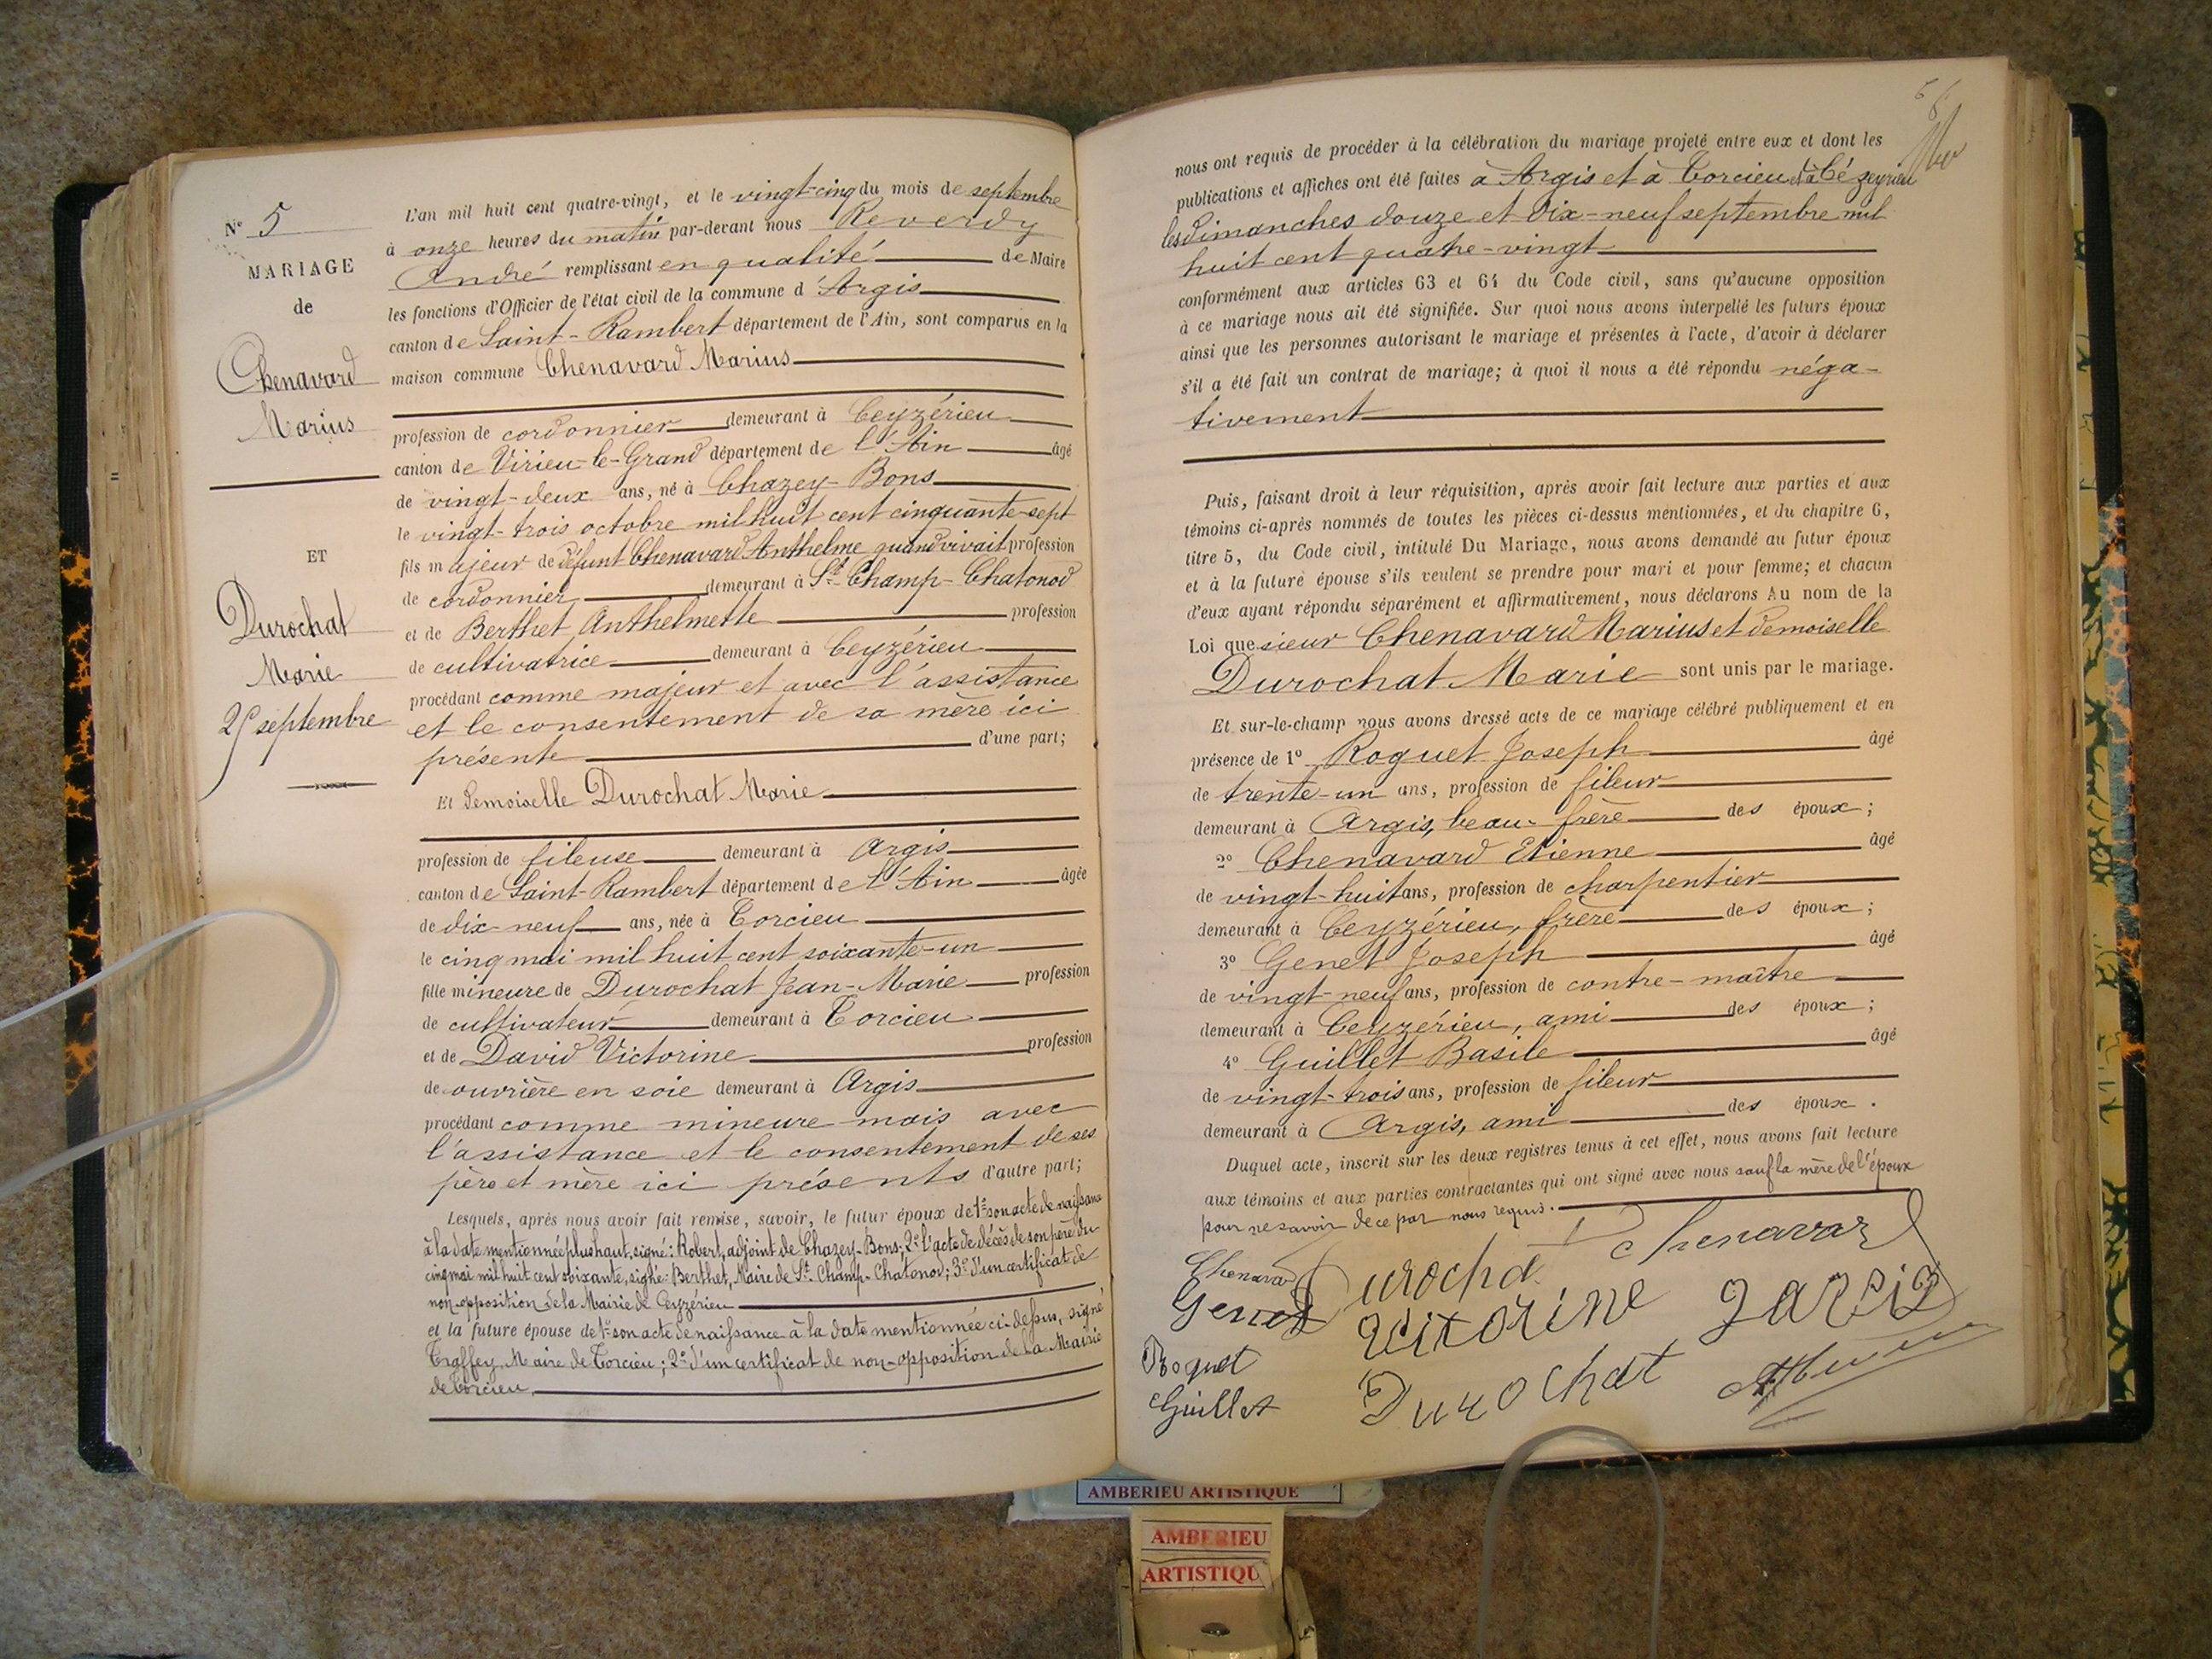 N° 5
MARIAGE
de
Chenavard
Marius
ET
Durochat
Marie
25 septembre
L'an mil huit cent quatre-vingt, et le vingt-cinq du mois de septembre
à onze heures du matin par-devant nous Reverdy
André remplissant en qualité de Maire
les fonctions d'Officier de l'état civil de la commune d'Argis
canton de Saint-Rambert département de l'Ain, sont comparus en la
maison commune Chenavard Marius
profession de cordonnier demeurant à Ceyzérieu
canton de Virieu-le-Grand département de l'Ain âgé
de vingt-deux ans, né à Chazey-Bons
le vingt-trois octobre mil huit cent cinquante-sept
fils majeur de défunt Chenavard Anthelme quand vivait profession
de cordonnier demeurant à St Champ-Chatonod
et de Berthet Anthelmette profession
de cultivatrice demeurant à Ceyzérieu
procédant comme majeur et avec l'assistance
et le consentement de sa mère ici
présente d'une part;
Et Demoiselle Durochat Marie
profession de fileuse demeurant à Argis
canton de Saint-Rambert département de l'Ain âgée
de dix-neuf ans, née à Torcieu
le cinq mai mil huit cent soixante-un
fille mineure de Durochat Jean-Marie profession
de cultivateur demeurant à Torcieu
et de David Victorine profession
de ouvrière en soie demeurant à Argis
procédant comme mineure mais avec
l'assistance et le consentement de ses
père et mère ici présents d'autre part;
Lesquels, après nous avoir fait remise, savoir, le futur époux de 1° son acte de naissance
à la date mentionnée plus haut, signé: Robert, adjoint de Chazey-Bons; 2° l'acte de décès de son père du
cinq mai mil huit cent soixante, signé: Berthet, Maire de St Champ-Chatonod; 3° d'un certificat de
non-opposition de la Mairie de Ceyzérieu
et la future épouse de 1° son acte de naissance à la date mentionnée ci-dessus, signé
Traffey, Maire de Torcieu; 2° d'un certificat de non-opposition de la Mairie
de Torcieu
nous ont requis de procéder à la célébration du mariage projeté entre eux et dont les
publications et affiches ont été faites à Argis et à Torcieu et à Céyzeyrieu
les dimanches douze et dix-neuf septembre mil
huit cent quatre-vingt
conformément aux articles 63 et 64 du Code civil, sans qu'aucune opposition
à ce mariage nous ait été signifiée. Sur quoi nous avons interpellé les futurs époux
ainsi que les personnes autorisant le mariage et présentes à l'acte, d'avoir à déclarer
s'il a été fait un contrat de mariage; à quoi il nous a été répondu néga-
tivement
Puis, faisant droit à leur réquisition, après avoir fait lecture aux parties et aux
témoins ci-après nommés de toutes les pièces ci-dessus mentionnées, et du chapitre 6,
titre 5, du Code civil, intitulé Du Mariage, nous avons demandé au futur époux
et à la future épouse s'ils veulent se prendre pour mari et pour femme; et chacun
d'eux ayant répondu séparément et affirmativement, nous déclarons Au nom de la
Loi que sieur Chenavard Marius et demoiselle
Durochat Marie sont unis par le mariage.
Et sur-le-champ nous avons dressé acte de ce mariage célébré publiquement et en
présence de 1° Roguet Joseph âgé
de trente-un ans, profession de fileur
demeurant à Argis, beau-frère des époux;
2° Chenavard Etienne âgé
de vingt-huit ans, profession de charpentier
demeurant à Ceyzérieu, frère des époux;
3° Genet Joseph âgé
de vingt-neuf ans, profession de contre-maître
demeurant à Ceyzérieu, ami des époux;
4° Guillet Basile âgé
de vingt-trois ans, profession de fileur
demeurant à Argis, ami des époux.
Duquel acte, inscrit sur les deux registres tenus à cet effet, nous avons fait lecture
aux témoins et aux parties contractantes qui ont signé avec nous sauf la mère de l'époux
pour ne savoir de ce par nous requis.
Chenavard
Genet
Roguet
Guillet
Durochat
Durochat
AMBERIEU ARTISTIQUE
AMBERIEU
ARTISTIQU